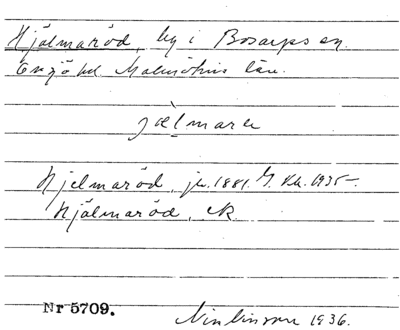 Hjälmaröd, by i Bosarps sn.
Onsjö hd. Malmöhus län.
jælmarə
Hjelmaröd, jr. 1881. G. kb. 1935.
Hjälmaröd, ek
Nr 5709.
1936.